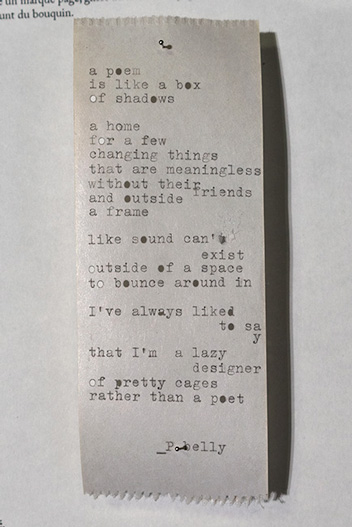 un marque page,
unt du bouquin.
a poem
is like a box
of shadows
a home
for a few
changing things
that are meaningless
without their
friends
and outside
a frame
like sound can't
exist
outside of a space
to bounce around in
I've always liked
to sa
y
that I'm a lazy
designer
of pretty cages
rather than a poet
_P.belly